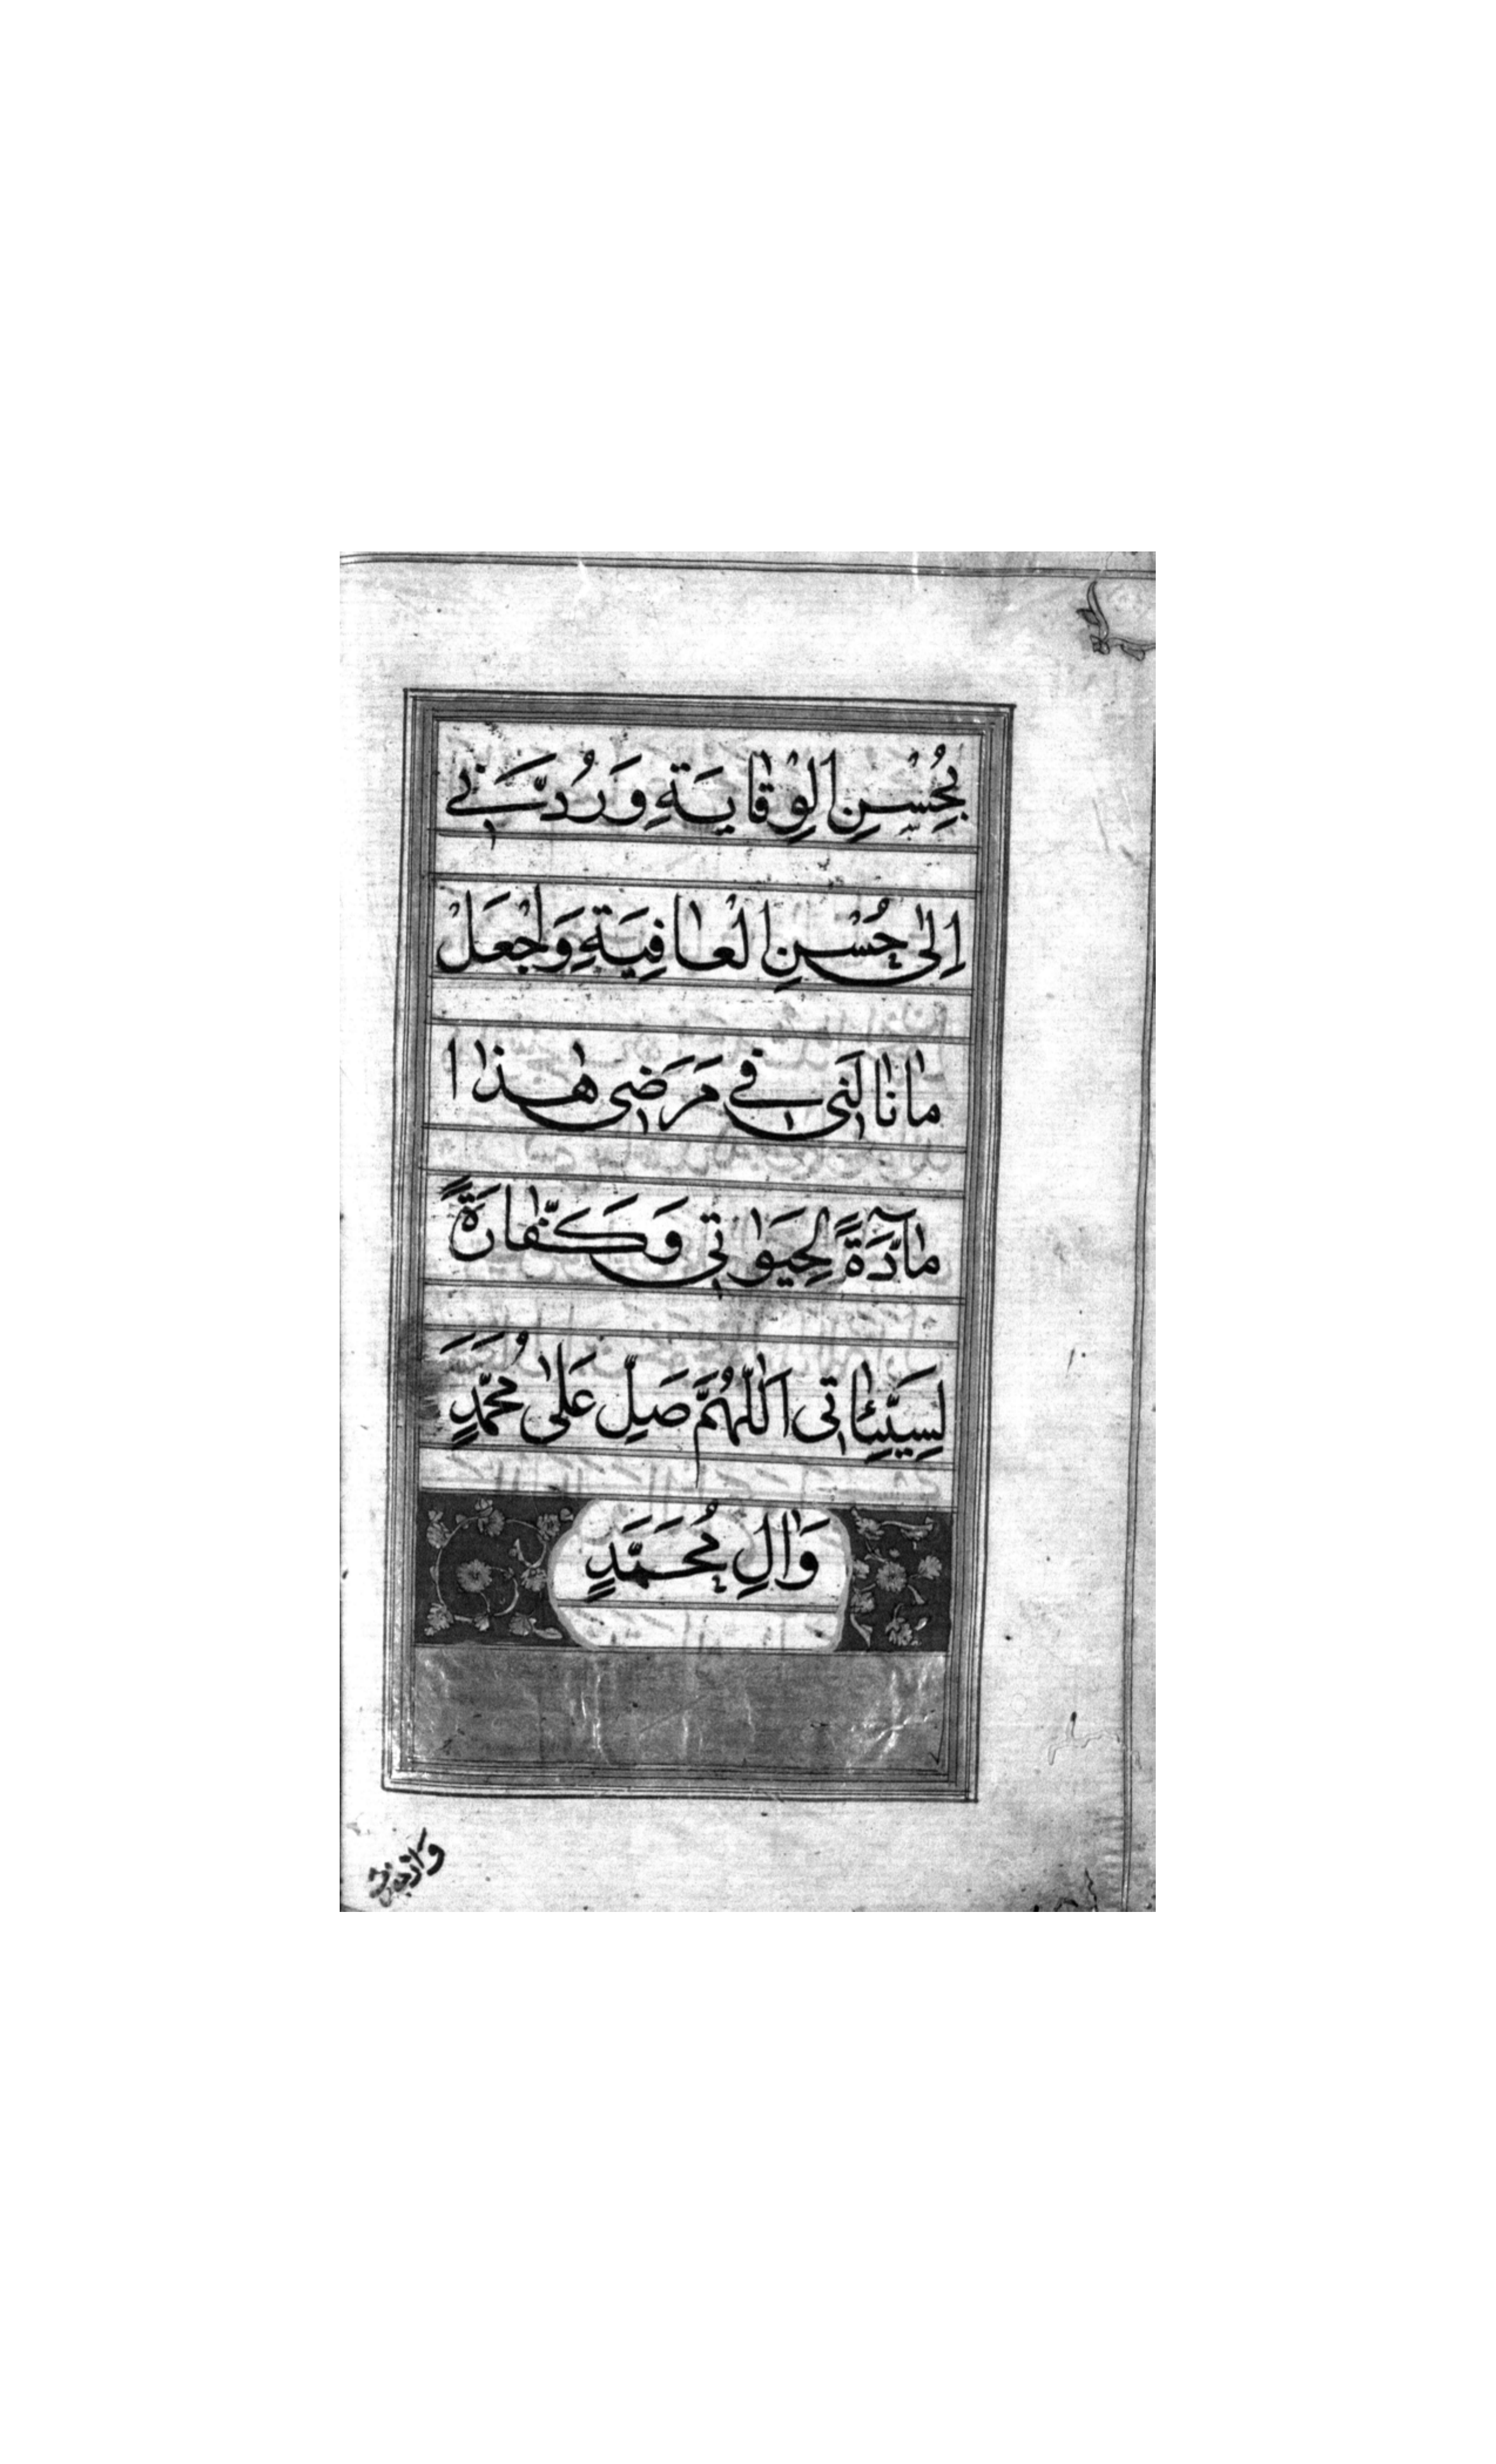 بِحُسْنِ الْوِقٰايَةِ وَرُدَّنَي
اِلىٰ حُسْنِ الْعٰافِيَةِ وَاجْعَلْ
مٰا نٰالَنَي فَي مَرَضَي هٰذٰا
مٰآدَّةً لِحَيَوٰتَي وَكَفّٰارَةً
لِسَيِّئٰاتَي اَللّٰهُمَّ صَلِّ عَلىٰ مُحَمَّدٍ
وَاٰلِ مُحَمَّدٍ